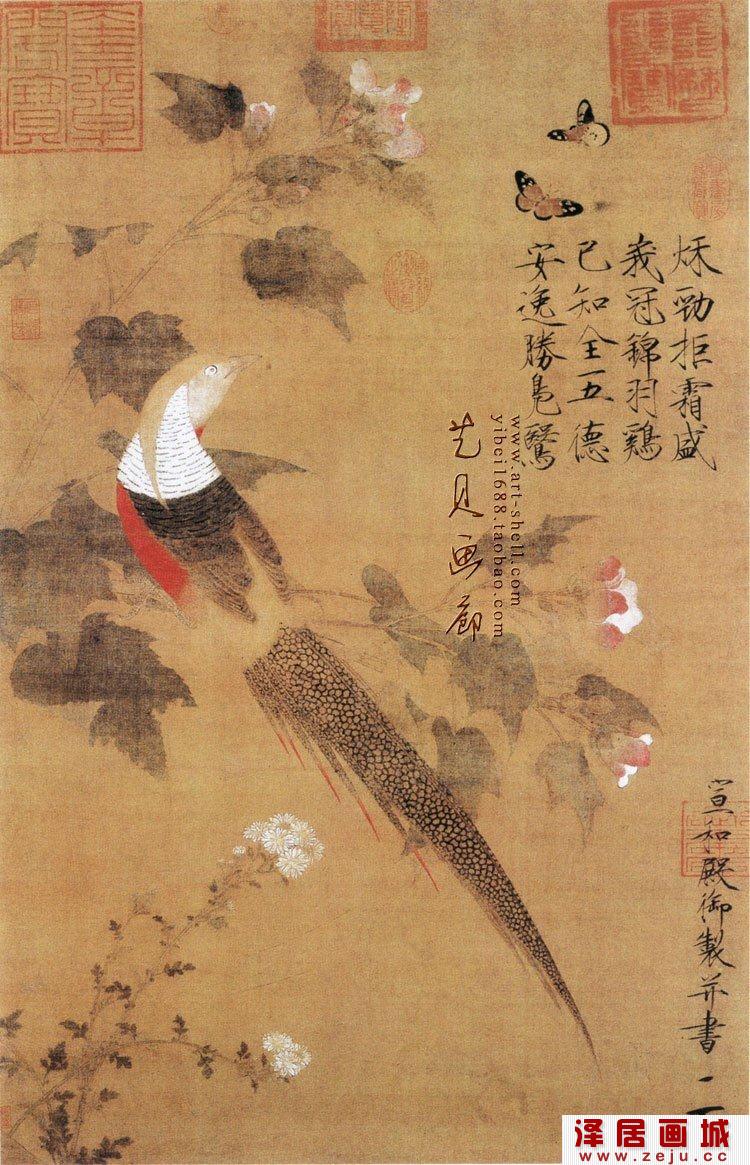 秌勁拒霜盛
峩冠錦羽鷄
已知全五德
安逸勝鳧鷖
宣和殿御製并書
艺贝画廊
www.art-shell.com
yibei1688.taobao.com
泽居画城
www.zeju.cc